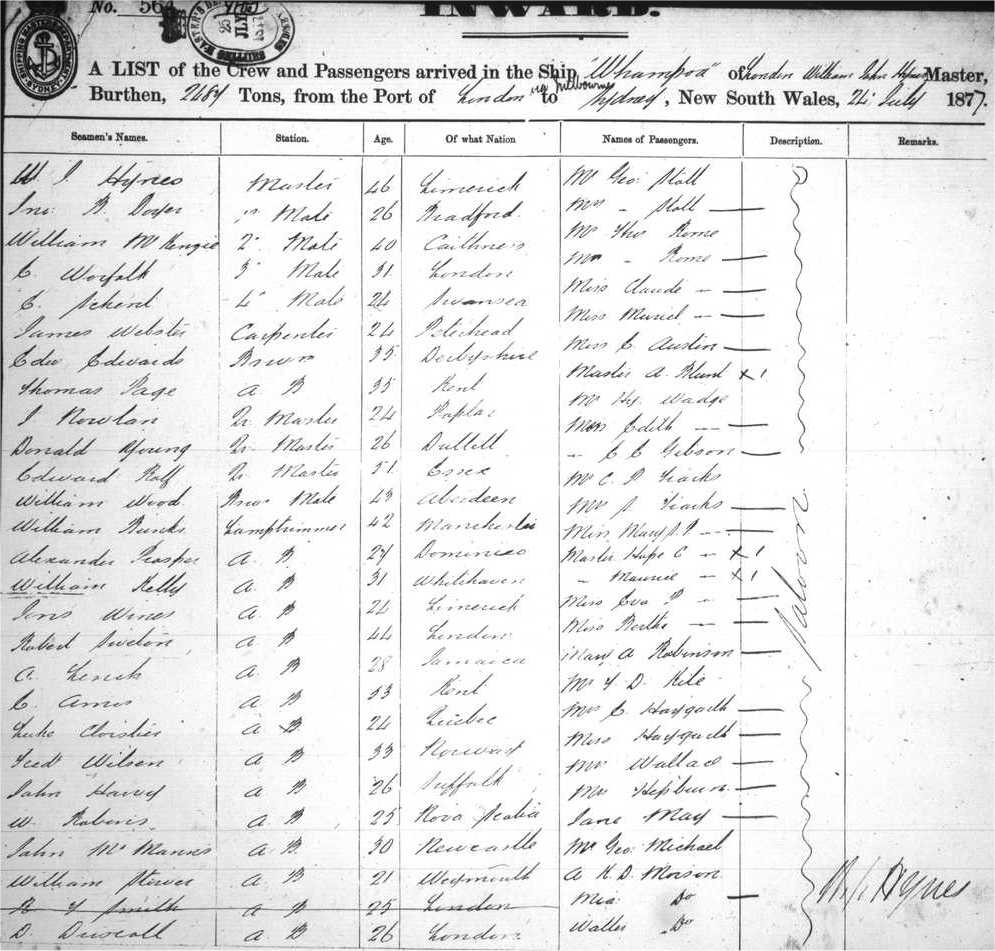 No. 564
INWARD.
A LIST of the Crew and Passengers arrived in the Ship "Whampoa" of London William John Hynes Master,
Burthen, 2684 Tons, from the Port of London via Melbourne to Sydney, New South Wales, 24 July 1877.
Seamen's Names. Station. Age. Of what Nation Names of Passengers. Description. Remarks.
W J Hynes Master 46 Limerick Mr Geo: Stoll
Jno: B. Mate 26 Bradford. Mrs - Stoll
William McKenzie 2" Mate 40 Caithness Mr Thos Rome
C. Worfolk 3" Mate 31 London Mrs - Rome
C. 4" Mate 24 Swansea Miss Claude -
James Webster Carpenter 24 Peterhead Miss Muriel -
Edw Edwards 35 Derbyshire Miss C Austin
Thomas Page A B 35 Kent Master A. Blunt x 1
J Nowlan Qr. Master 24 Poplar Mr Hy. Wadge
Donald Young Qr. Master 26 Miss Edith -
Edward Rolf Qr. Master 51 Essex - C C Gibson
William Wood Mate 43 Aberdeen Mr C. P
William Binks Lamptrimmer 42 Manchester Mrs
Alexander Prosper A. B 27 Dominica Miss Mary
William Kelly A. B 31 Whitehaven Master Hope C - x 1
A B 24 Limerick - Maurice - x 1
Robert A B 44 London Miss Eva P -
A B 28 Jamaica Miss Bertha -
C. Ames A B 53 Kent Mary A Robinson
Luke A B 24 Quebec Mr Y D. Kile
Fredk Wilson A B 33 Norway Mrs C Haygarth
John Harvey A B 26 Suffolk Miss Haygarth
W. Roberts A B 25 Nova Scotia Mrs Wallace
John McManus A B 30 Newcastle Mrs Hepburn
William Stower A B 21 Weymouth Jane May
Smith A B 25 London Mr Geo: Michael
D. Driscoll A B 26 London A K. D. Mason
Do
Walter Do
Saloon
W J Hynes